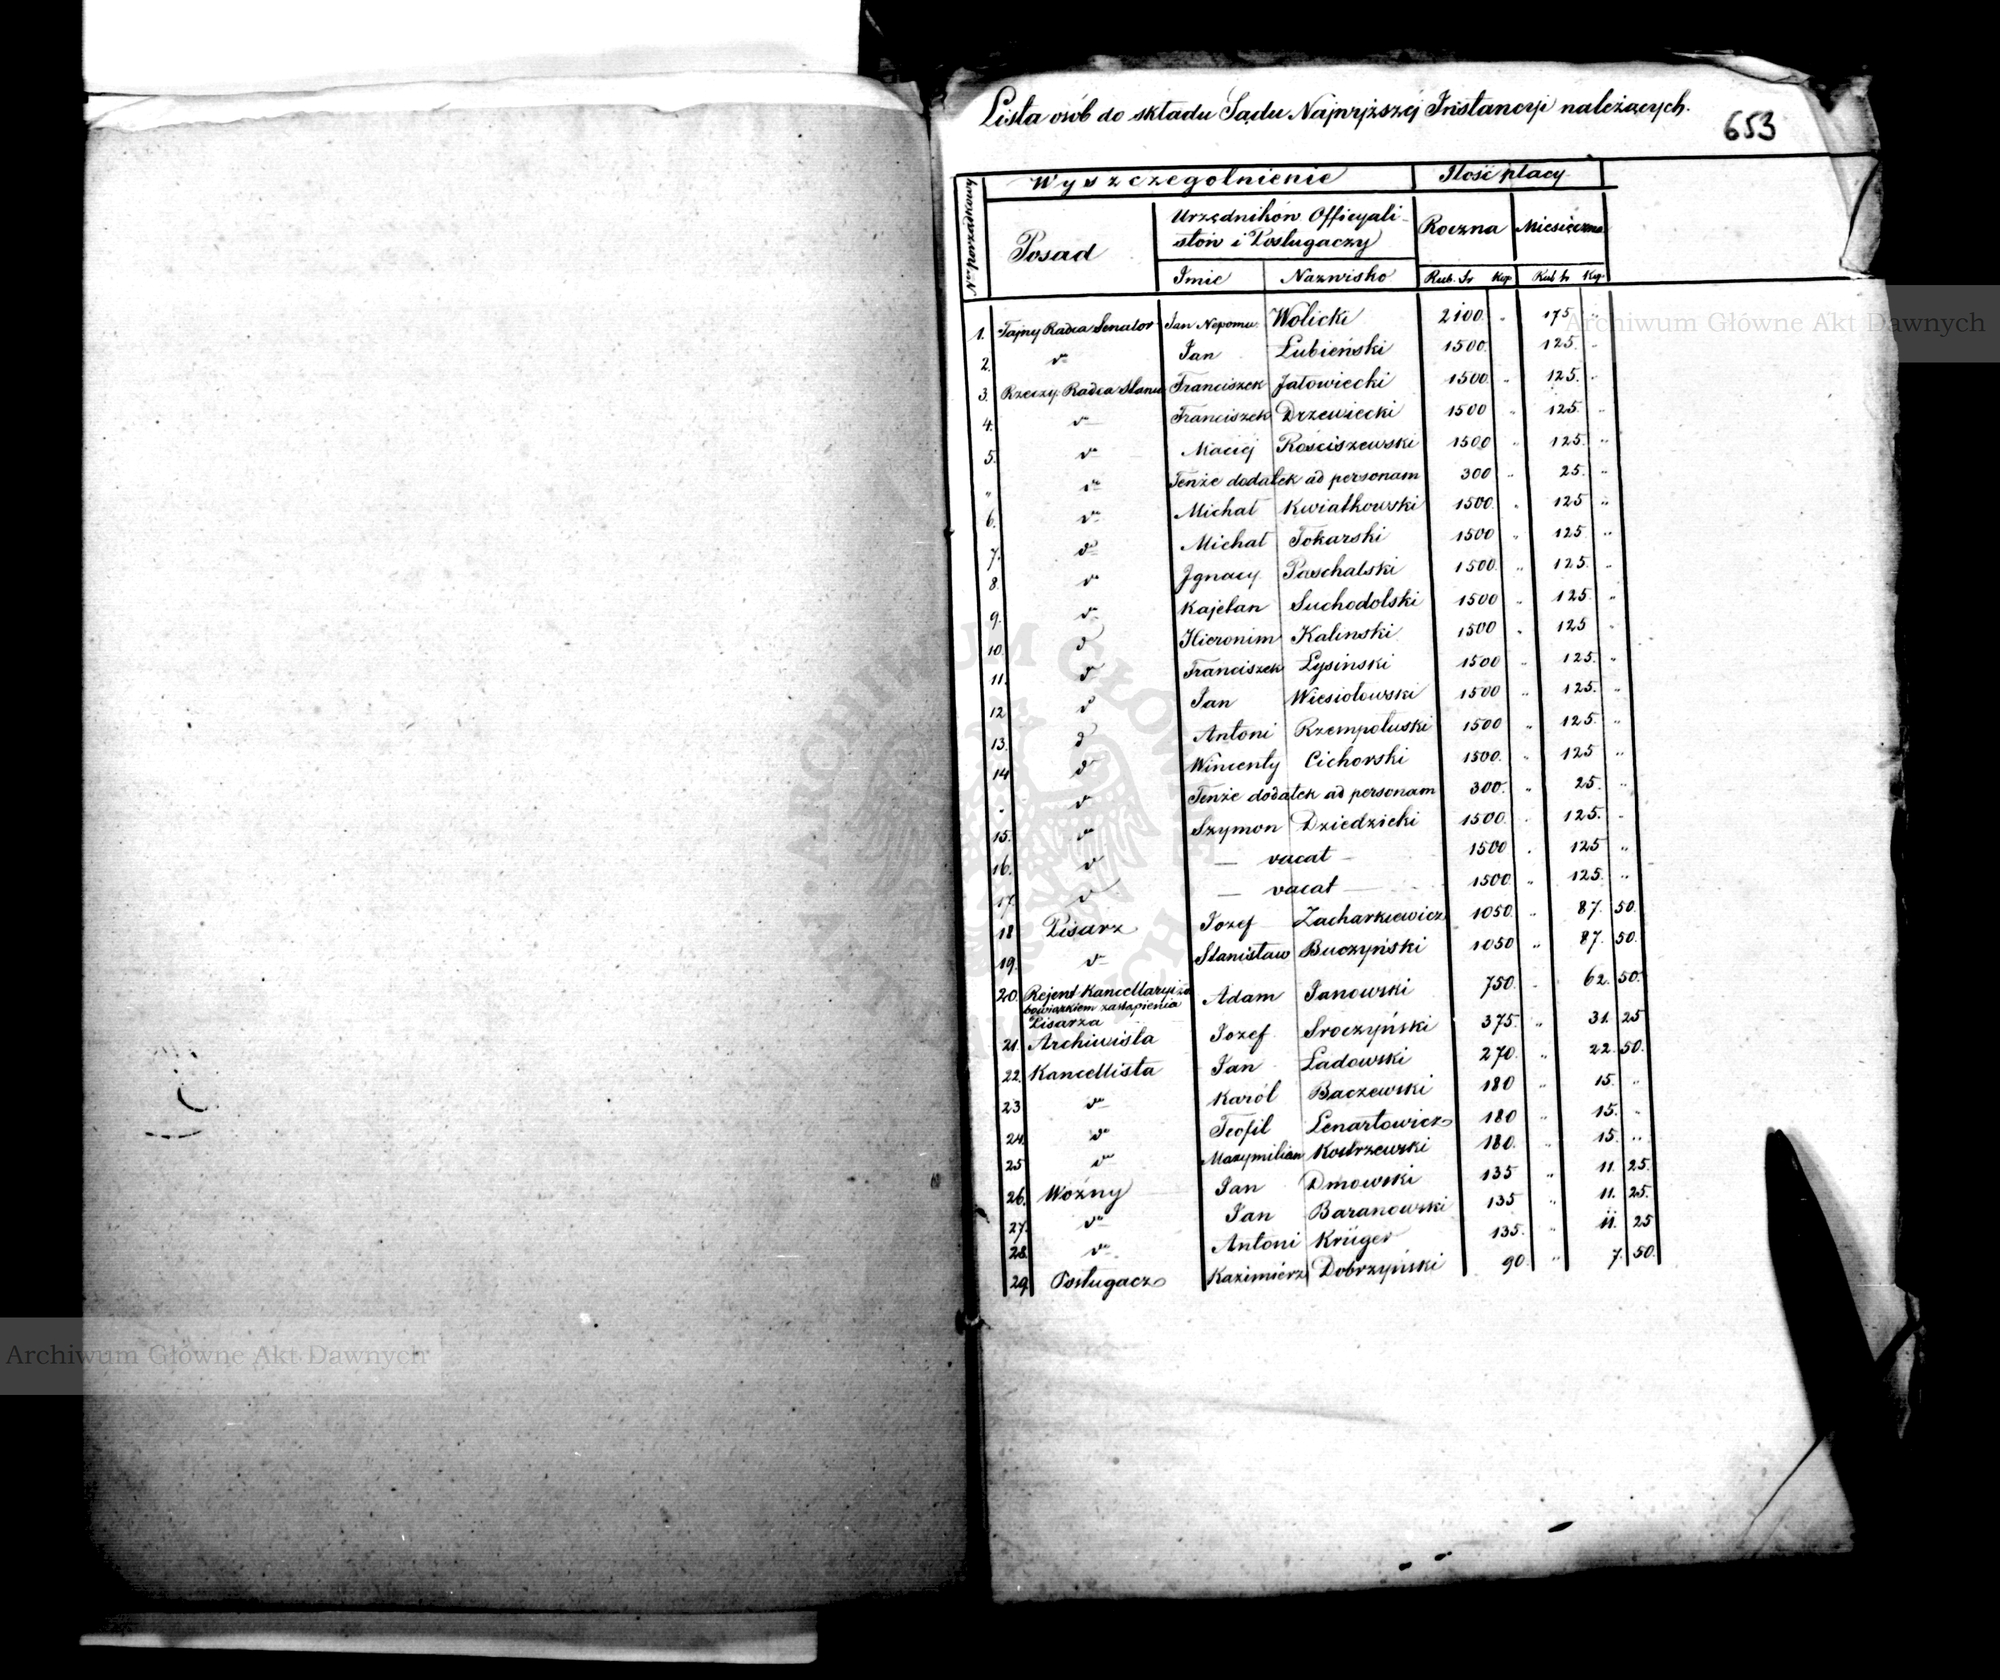 Lista osób do składu Sądu Najwyższéj Instancyi należących.
653
Nro porządkowy
Wyszczegolnienie
Ilość płacy
Posad
Urzędników Officyali-
stów i Posługaczy
Imie
Nazwisko
Roczna
Miesięczna
Rub. Sr Kop. Rub Sr Kop.
1. Tajny Radca Senator Jan Nepomu. Wolicki 2100. " 175 "
2. do Jan Łubieński 1500. 125. "
3. Rzeczy. Radca Stanu Franciszek Jałowiecki 1500. " 125. "
4. do Franciszek Drzewiecki 1500 " 125. "
5. do Maciéj Rościszewski 1500 " 125. "
" do Tenże dodatek ad personam 300 " 25. "
6. do Michał Kwiatkowski 1500. " 125 "
7. do Michał Tokarski 1500 " 125. "
8. do Ignacy Paschalski 1500. " 125. "
9. do Kajetan Suchodolski 1500 " 125. "
10. do Hieronim Kalinski 1500 " 125 "
11. do Franciszek Łysinski 1500 " 125. "
12 do Jan Wiesiołowski 1500 " 125. "
13. do Antoni Rzempołuski 1500 " 125. "
14 do Wincenty Cichorski 1500. " 125 "
" do Tenże dodatek ad personam 300. " 25. "
15. do Szymon Dziedzicki 1500. " 125. "
16. do — vacat — 1500 " 125 "
17. do — vacat — 1500. " 125. "
18 Pisarz Jozef Zacharkiewicz 1050. " 87. 50.
19. do Stanisław Buczyński 1050 " 87. 50.
20. Rejent Kancellaryi z o
bowiązkiem zastąpienia
Pisarza Adam Janowski 750. " 62. 50.
21. Archiwista Jozef Sroczyński 375. " 31. 25
22. Kancellista Jan Ladowski 270. " 22. 50.
23 do Karól Baczewski 180 " 15. "
24. do Teofil Lenartowicz 180 " 15. "
25 do Maxymilian Kostrzewski 180. " 15. "
26. Woźny Jan Dmowski 135 " 11. 25.
27. do Jan Baranowski 135 " 11. 25.
28. do Antoni Krüger 135. " 11. 25
29. Posługacz Kazimierz Dobrzyński 90. " 7. 50.
Archiwum Główne Akt Dawnych
Archiwum Główne Akt Dawnych